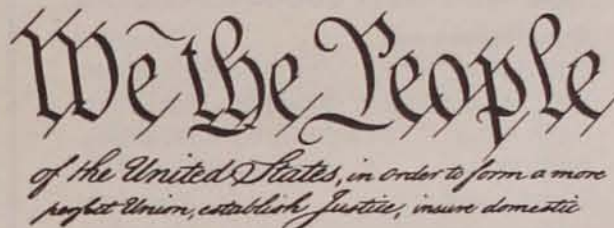 We the People
of the United States, in order to form a more
perfect Union, establish Justice, insure domestic